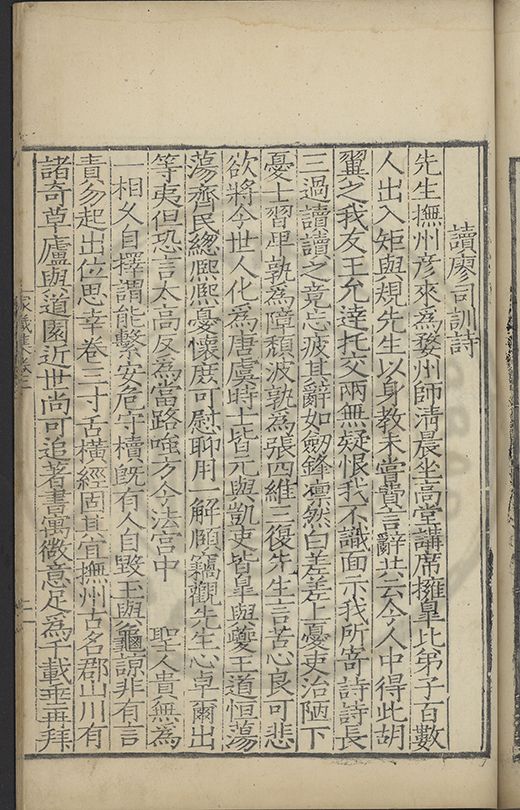 讀廖司訓詩
先生撫州彥來為婺州師清晨坐高堂講席擁皐比弟子百數
人出入矩與規先生以身教未嘗費言辭共云今人中得此胡
翼之我友王允達托交兩無疑恨我不識面示我所寄詩詩長
三過讀讀之竟忘疲其辭如劒鋒凛然白差差上憂吏治陋下
憂士習卑孰為障頹波孰為張四維三復先生言苦心良可悲
欲將今世人化為唐虞時士皆元與凱吏皆皐與夔王道恒蕩
蕩齊民緫熈熈憂懷庶可慰聊用一解頤竊觀先生心卓爾出
等夷但恐言太高反為當路嗤方今法宮中 聖人貴無為
一相久自擇謂能繫安危守櫝旣有人自毀玉與龜諒非有言
責勿起出位思幸卷三寸舌橫經固其宜撫州古名郡山川有
諸奇草廬與道園近世尚可追著書寓微意足為千載垂再拜